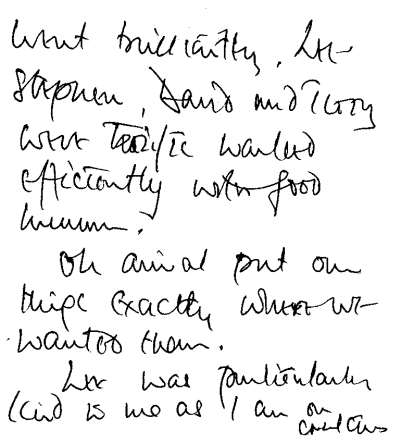 went brilliantly. Lee
Stephen, David and Terry
were terrific worked
efficiently with good
humour.
On arrival put our
things exactly where we
wanted them.
Lee was particularly
kind to me as I am on
crutches